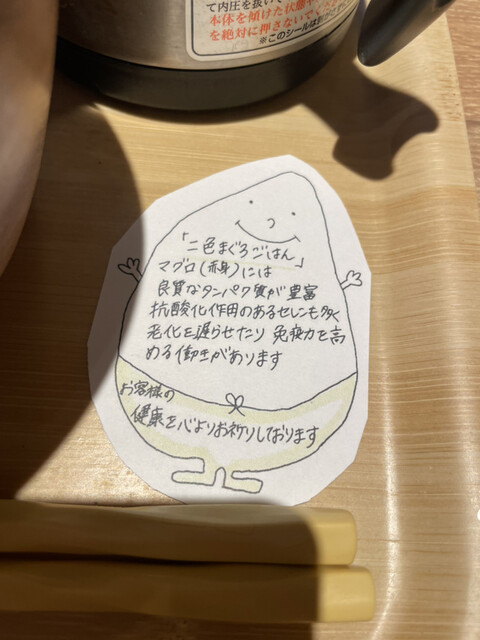 て内圧を抜いて
本体を傾けた状態や
を絶対に押さないでくだ
※このシールは
「二色まぐろごはん」
マグロ(赤身)には
良質なタンパク質が豊富
抗酸化作用のあるセレンも多く
老化を遅らせたり 免疫力を高
める働きがあります
お客様の
健康を心よりお祈りしております